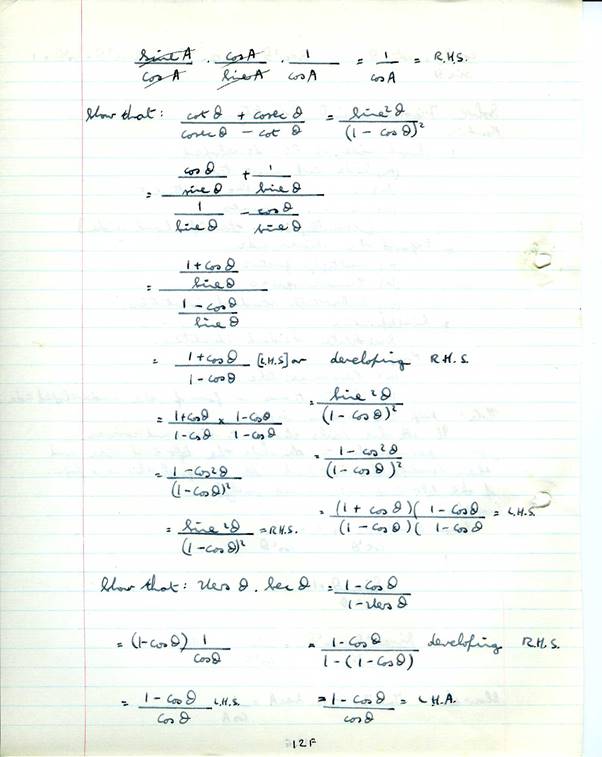 sine A/cos A . cos A/sine A . 1/cos A = 1/cos A = R.H.S.
Show that: cot θ + cosec θ / cosec θ - cot θ = sine²θ/(1 - cos θ)²
= cos θ/sine θ + 1/sine θ / 1/sine θ - cos θ/sine θ
= 1+cos θ/sine θ / 1-cos θ/sine θ
= 1+cos θ/1-cos θ [L.H.S] or developing R.H.S.
= 1+cosθ/1-cosθ x 1-cosθ/1-cosθ
= sine²θ/(1-cosθ)²
= 1-cos²θ/(1-cosθ)²
= 1-cos²θ/(1-cosθ)²
= sine²θ/(1-cosθ)² = R.H.S.
= (1 + cosθ)(1-cosθ/(1-cosθ)(1-cosθ = L.H.S.
Show that: vers θ . sec θ = 1-cosθ/1-vers θ
= (1-cosθ) 1/cosθ
= 1-cosθ/1-(1-cosθ) developing R.H.S.
= 1-cosθ/cosθ L.H.S.
= 1-cosθ/cosθ = L.H.A.
12F